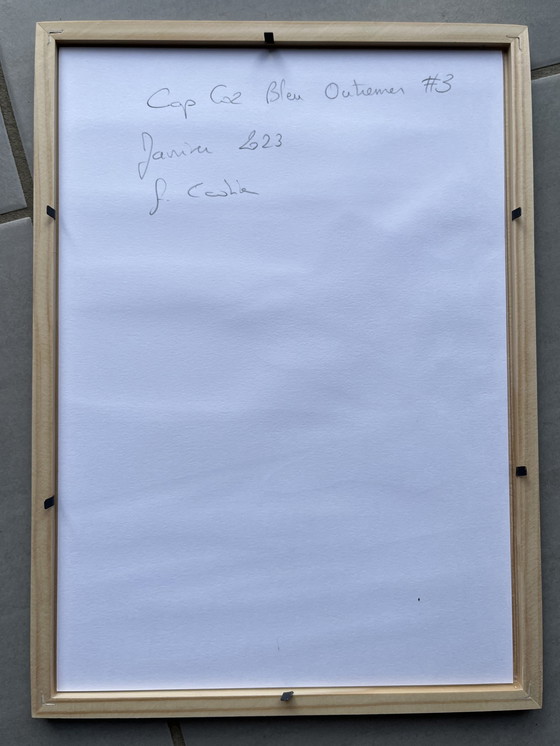 Cap Coz Bleu Outremer #3
Janvier 2023